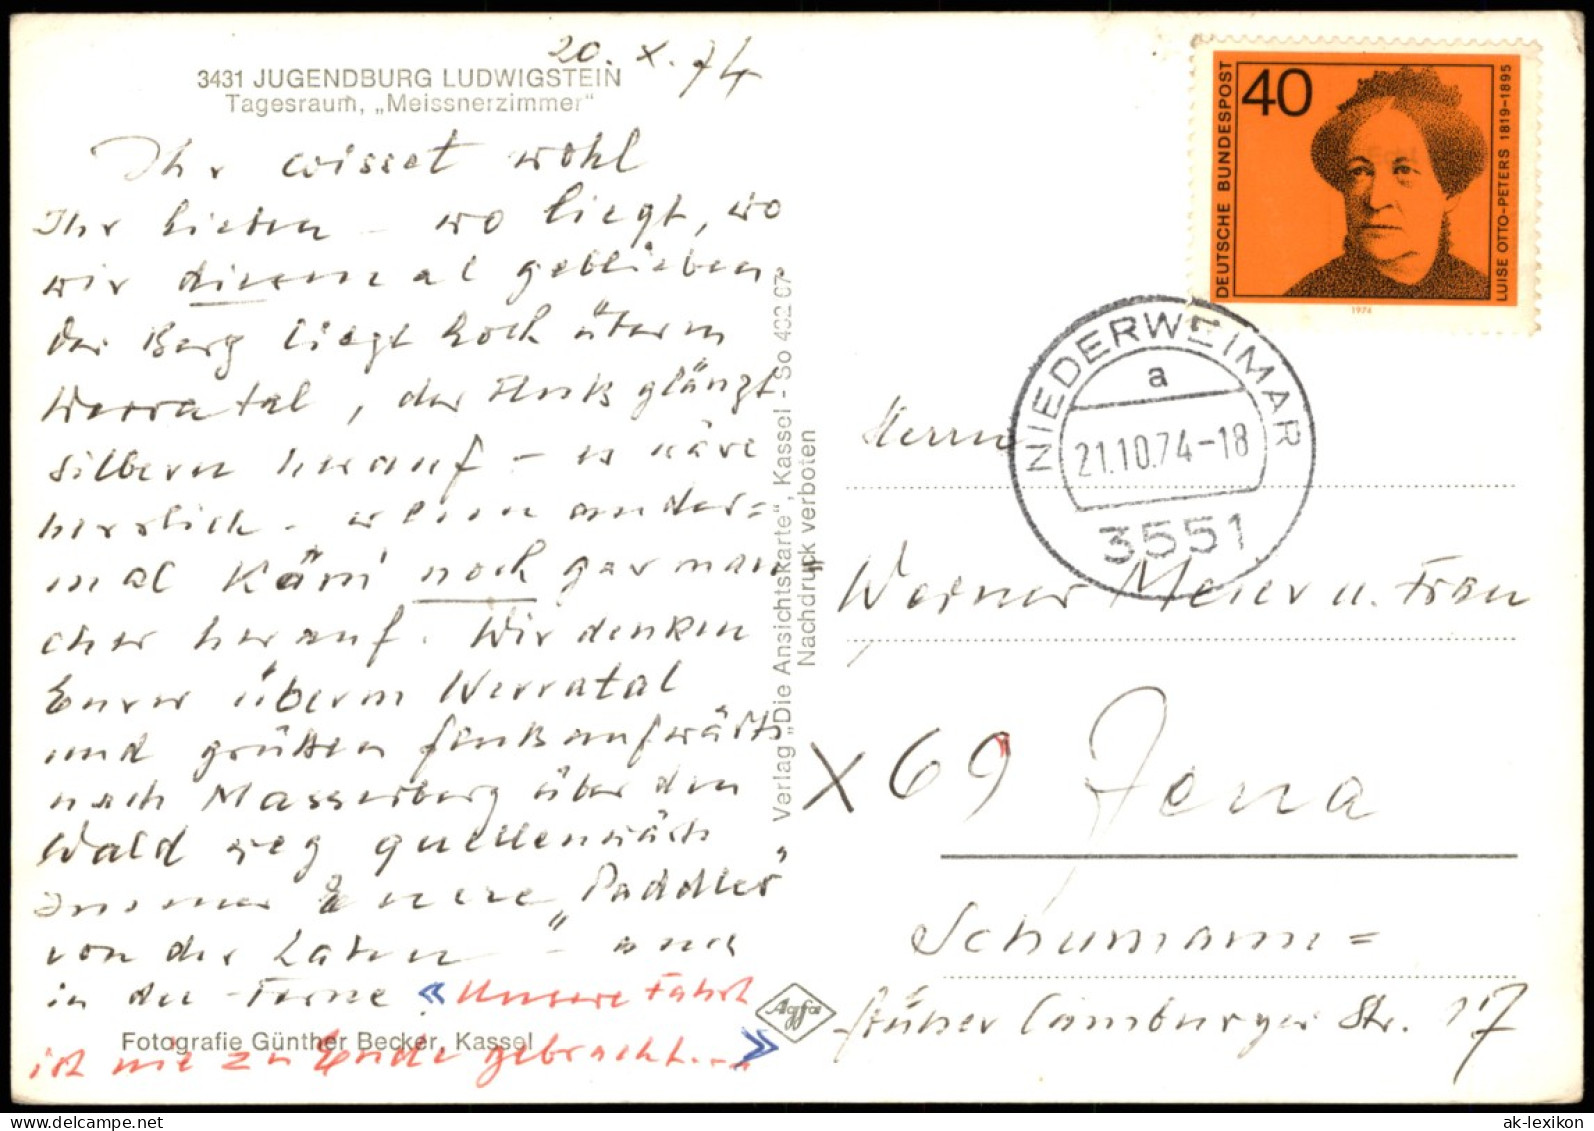 20. X. 74
3431 JUGENDBURG LUDWIGSTEIN
Tagesraum, „Meissnerzimmer"
Ihr wisset wohl
Ihr Lieben - wo liegt, wo
wir diesmal geblieben.
Der Berg liegt hoch überm
Werratal, der Fluß glänzt
silbern herauf - es wäre
herrlich - wenn ander=
mal käm' noch gar man=
cher herauf. Wir denken
Eurer überm Werratal
und grüßen flußaufwärts
nach Masserberg über den
Wald weg quellenwärts
Immer Euere „Paddler"
von der Lahn - auch
in der Ferne «Unsere Fahrt
ist nie zu Ende gebracht...»
Fotografie Günther Becker, Kassel
Verlag „Die Ansichtskarte", Kassel - So 402 67
Nachdruck verboten
Agfa
DEUTSCHE BUNDESPOST
40
LUISE OTTO-PETERS 1819-1895
1974
NIEDERWEIMAR
a
21.10.74-18
3551
Herrn
Werner Meier u. Frau
X 69 Jena
Schumann=
früher Camburger Str. 17
ak-lexikon.com